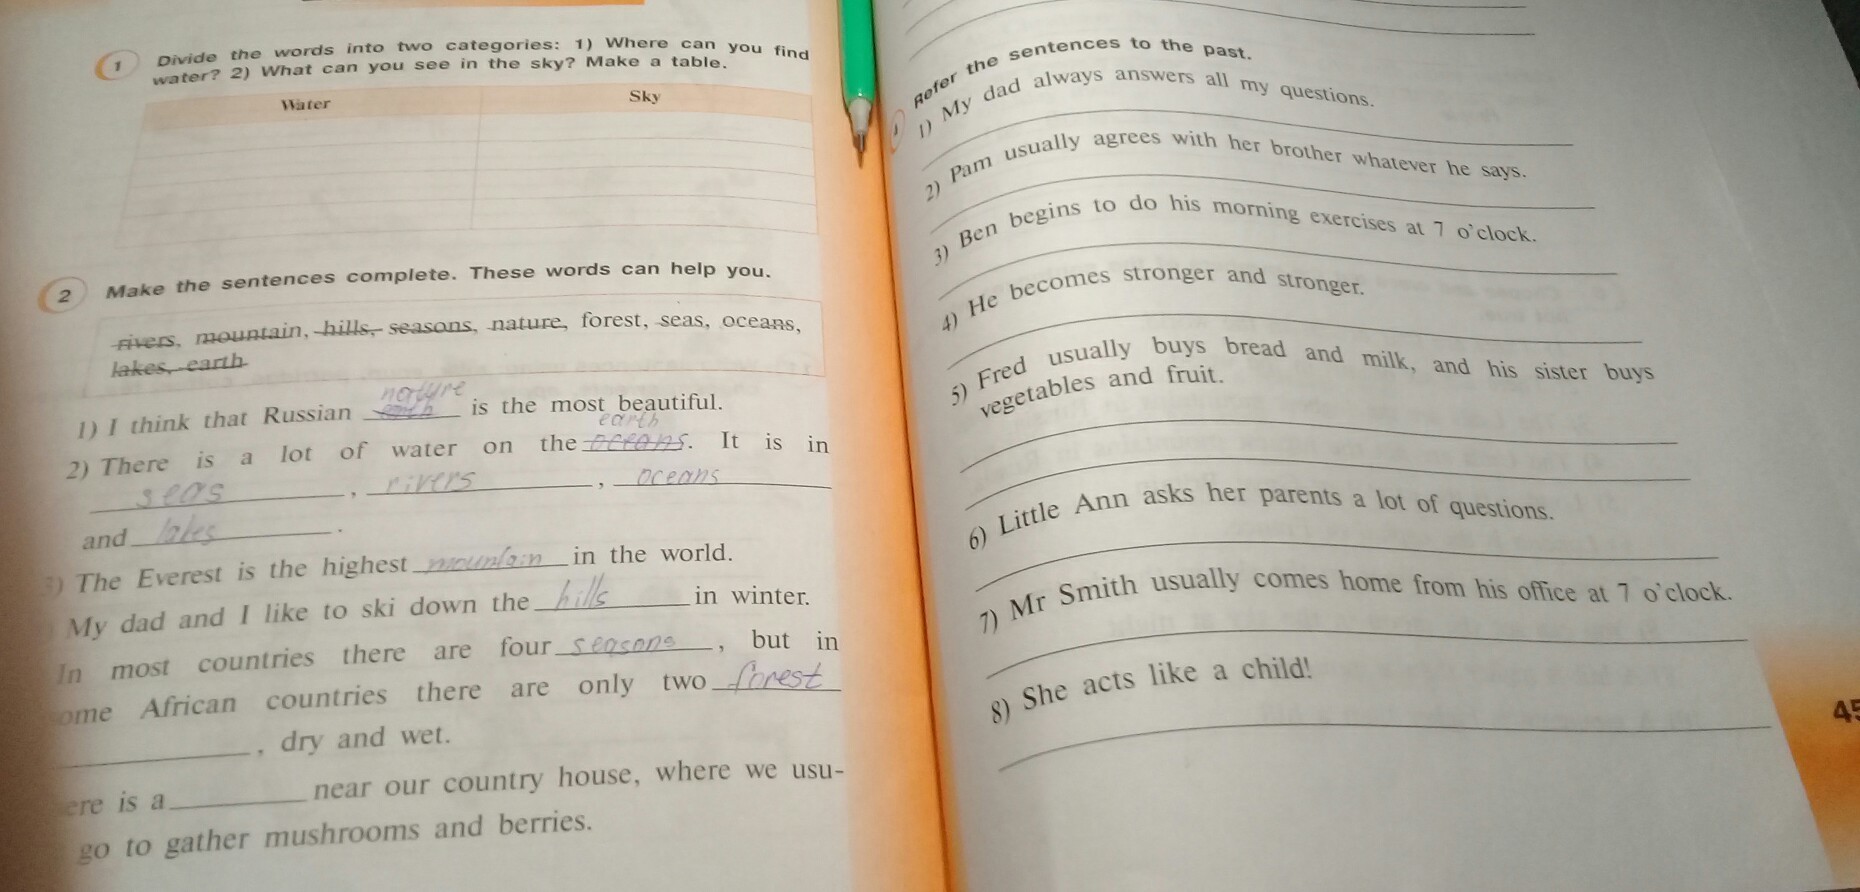 1 Divide the words into two categories: 1) Where can you find
water? 2) What can you see in the sky? Make a table.
Water Sky
2 Make the sentences complete. These words can help you.
rivers, mountain, hills, seasons, nature, forest, seas, oceans,
lakes, earth
nature
1) I think that Russian earth is the most beautiful.
earth
2) There is a lot of water on the oceans. It is in
seas, rivers, oceans
and lakes.
3) The Everest is the highest mountain in the world.
My dad and I like to ski down the hills in winter.
In most countries there are four seasons, but in
ome African countries there are only two forest
, dry and wet.
ere is a near our country house, where we usu-
go to gather mushrooms and berries.
Refer the sentences to the past.
1) My dad always answers all my questions.
2) Pam usually agrees with her brother whatever he says.
3) Ben begins to do his morning exercises at 7 o'clock.
4) He becomes stronger and stronger.
5) Fred usually buys bread and milk, and his sister buys
vegetables and fruit.
6) Little Ann asks her parents a lot of questions.
7) Mr Smith usually comes home from his office at 7 o'clock.
8) She acts like a child!
45